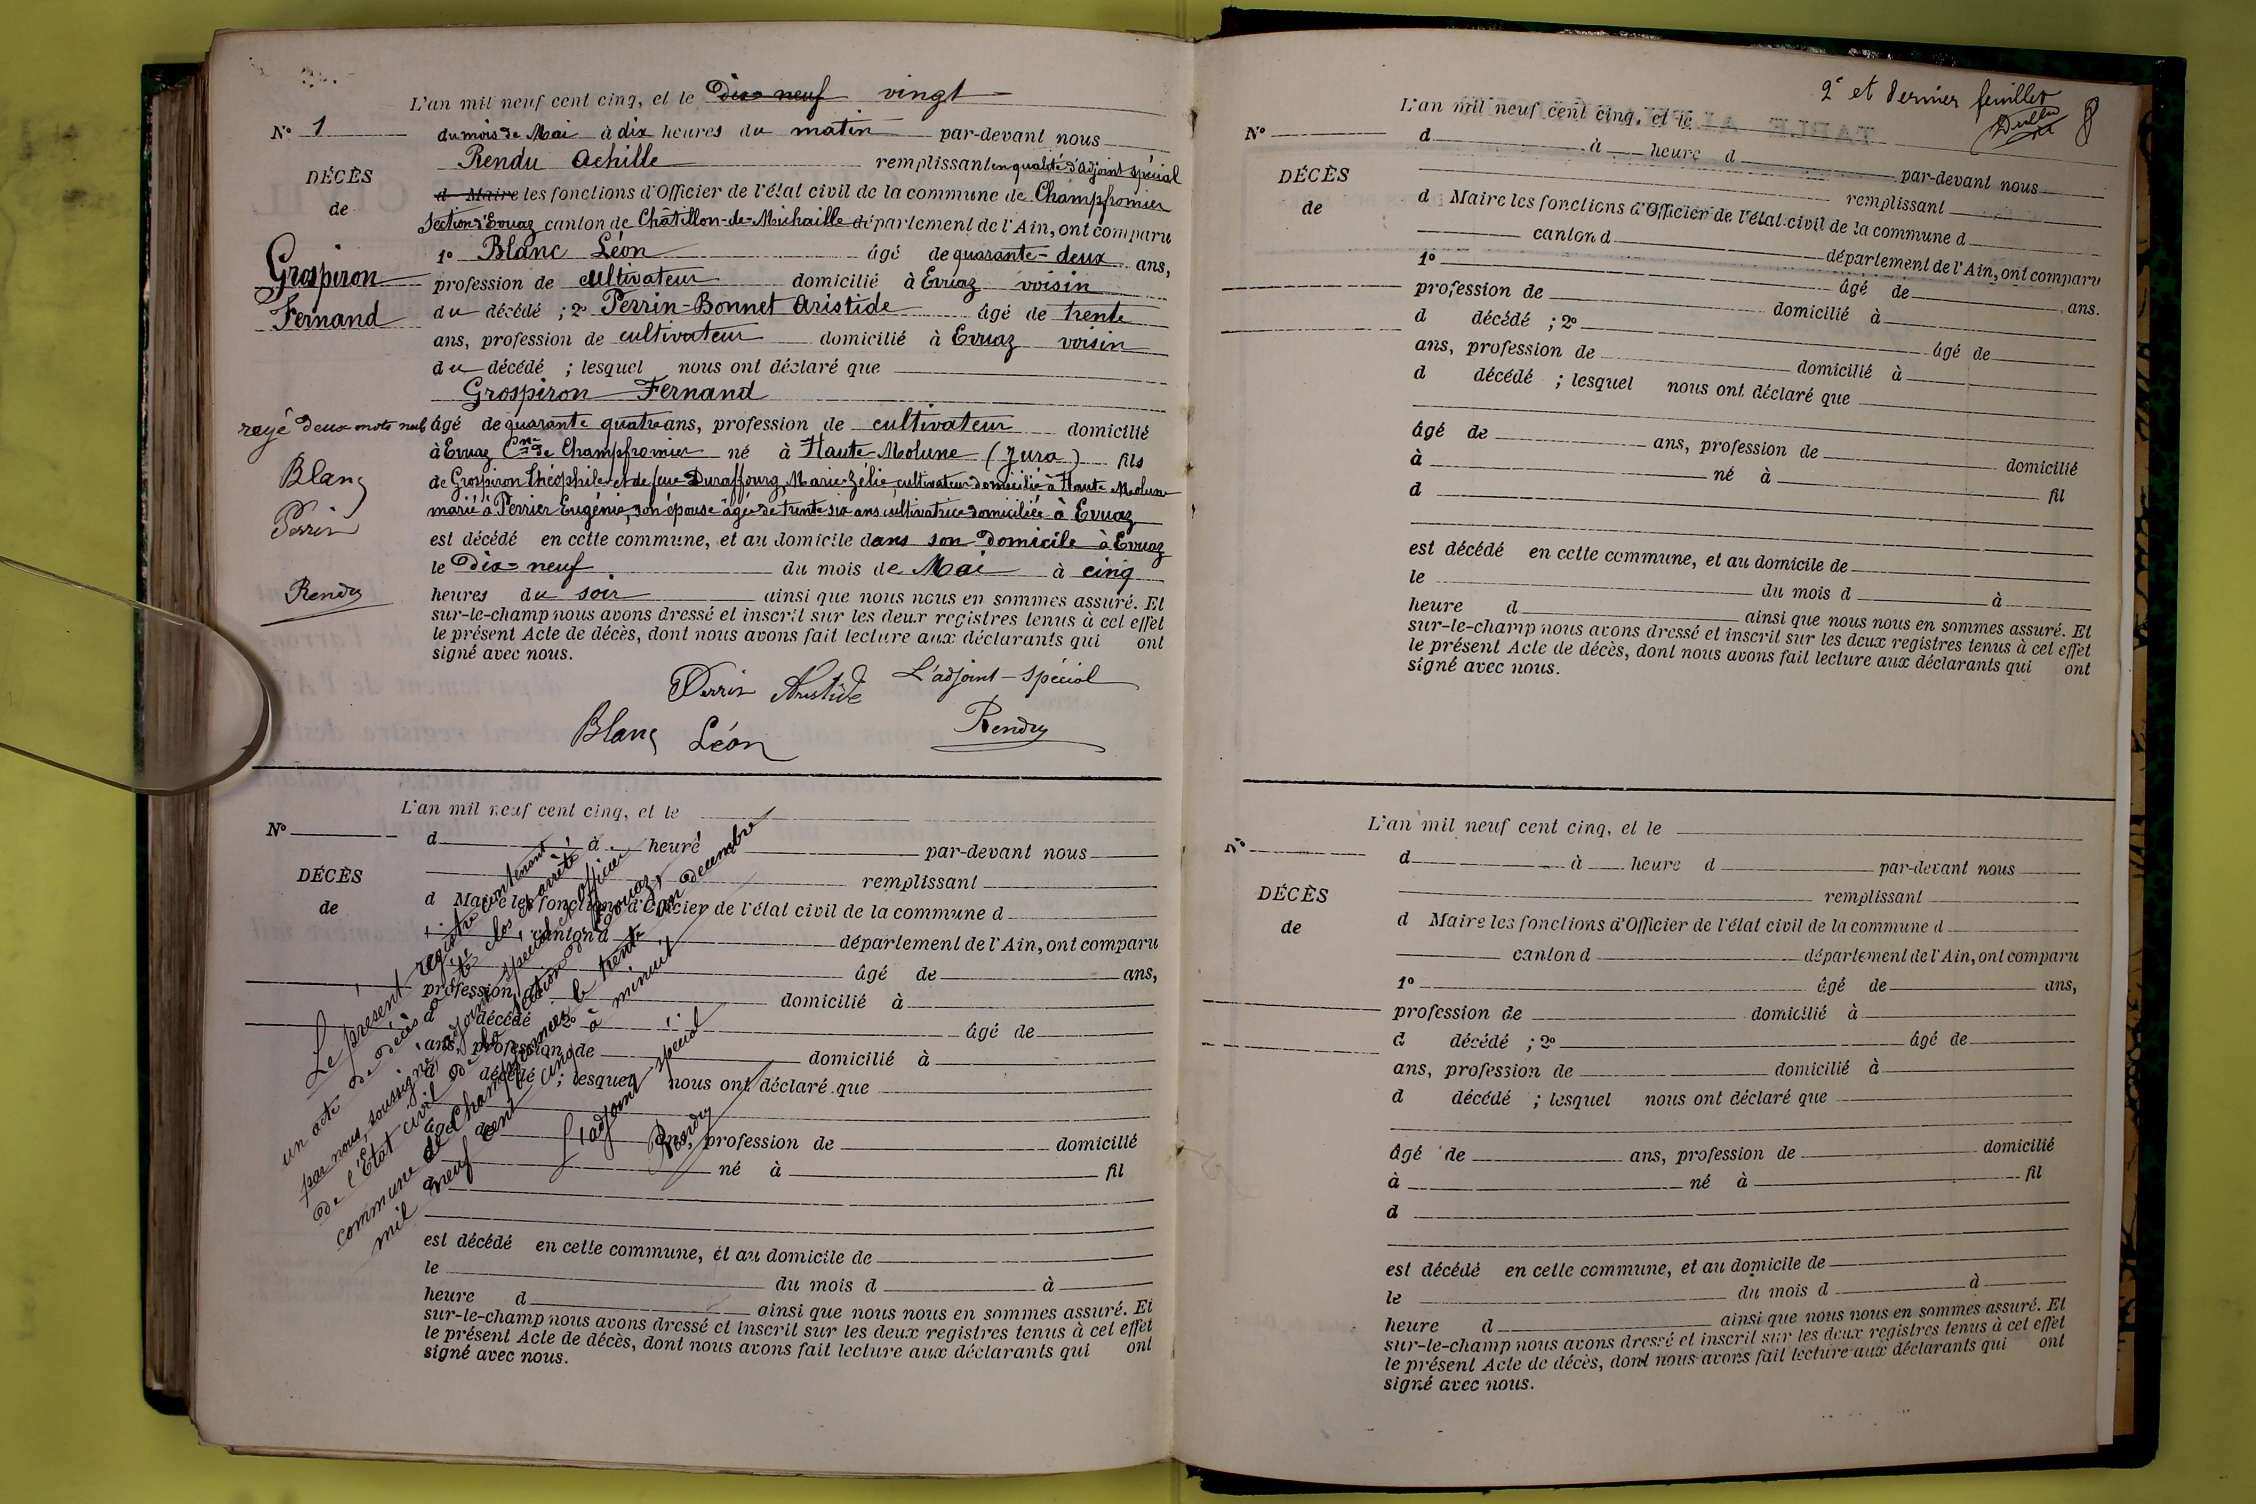 L'an mil neuf cent cinq, et le Dix-neuf vingt
N° 1
du mois de Mai à dix heures du matin par-devant nous
Rendu Achille remplissant en qualité d'adjoint spécial
DÉCÈS
de
d Maire les fonctions d'Officier de l'état civil de la commune de Champfromier
Section d'Evuaz canton de Châtillon-de-Michaille département de l'Ain, ont comparu
1° Blanc Léon âgé de quarante-deux ans,
Grospiron
Fernand
profession de cultivateur domicilié à Evuaz voisin
du décédé ; 2° Perrin-Bonnet Aristide âgé de trente
ans, profession de cultivateur domicilié à Evuaz voisin
du décédé ; lesquel nous ont déclaré que
Grospiron Fernand
rayé deux mots nuls
âgé de quarante quatre ans, profession de cultivateur domicilié
à Evuaz Cne de Champfromier né à Haute-Molune (Jura) fils
de Grospiron Théophile et de feue Duraffourg, Marie-Zélie, cultivateur domicilié à Haute Molune
marié à Perrier Eugénie, son épouse âgée de trente six ans cultivatrice domiciliée à Evuaz
est décédé en cette commune, et au domicile dans son domicile à Evuaz
le Dix-neuf du mois de Mai à cinq
heures du soir ainsi que nous nous en sommes assuré. Et
sur-le-champ nous avons dressé et inscrit sur les deux registres tenus à cet effet
le présent Acte de décès, dont nous avons fait lecture aux déclarants qui ont
signé avec nous.
Blanc
Perrin
Rendu
Perrin Aristide L'adjoint-spécial
Blanc Léon Rendu
L'an mil neuf cent cinq, et le
N°
d à heure par-devant nous
remplissant
DÉCÈS
de
d Maire les fonctions d'Officier de l'état civil de la commune d
canton d département de l'Ain, ont comparu
âgé de ans,
profession domicilié à
d décédé 2° âgé de
ans, profession de domicilié à
d décédé ; lesquel nous ont déclaré que
âgé de ans, profession de domicilié
à né à fil
d
est décédé en cette commune, et au domicile de
le du mois d à
heure d ainsi que nous nous en sommes assuré. Et
sur-le-champ nous avons dressé et inscrit sur les deux registres tenus à cet effet
le présent Acte de décès, dont nous avons fait lecture aux déclarants qui ont
signé avec nous.
Le présent registre contenant
un acte de décès a été clos et arrêté
par nous, soussigné, adjoint spécial et officier
de l'État civil de la section d'Evuaz,
commune de Champfromier le trente un décembre
mil neuf cent cinq à minuit
L'adjoint spécial
Rendu
2e et dernier feuillet
8
L'an mil neuf cent cinq, et le
N°
d à heure d par-devant nous
remplissant
DÉCÈS
de
d Maire les fonctions d'Officier de l'état civil de la commune d
canton d département de l'Ain, ont comparu
1° âgé de ans.
profession de domicilié à
d décédé ; 2° âgé de
ans, profession de domicilié à
d décédé ; lesquel nous ont déclaré que
âgé de ans, profession de domicilié
à né à fil
d
est décédé en cette commune, et au domicile de
le du mois d à
heure d ainsi que nous nous en sommes assuré. Et
sur-le-champ nous avons dressé et inscrit sur les deux registres tenus à cet effet
le présent Acte de décès, dont nous avons fait lecture aux déclarants qui ont
signé avec nous.
L'an mil neuf cent cinq, et le
N°
d à heure d par-devant nous
remplissant
DÉCÈS
de
d Maire les fonctions d'Officier de l'état civil de la commune d
canton d département de l'Ain, ont comparu
1° âgé de ans,
profession de domicilié à
d décédé ; 2° âgé de
ans, profession de domicilié à
d décédé ; lesquel nous ont déclaré que
âgé de ans, profession de domicilié
à né à fil
d
est décédé en cette commune, et au domicile de
le du mois d à
heure d ainsi que nous nous en sommes assuré. Et
sur-le-champ nous avons dressé et inscrit sur les deux registres tenus à cet effet
le présent Acte de décès, dont nous avons fait lecture aux déclarants qui ont
signé avec nous.